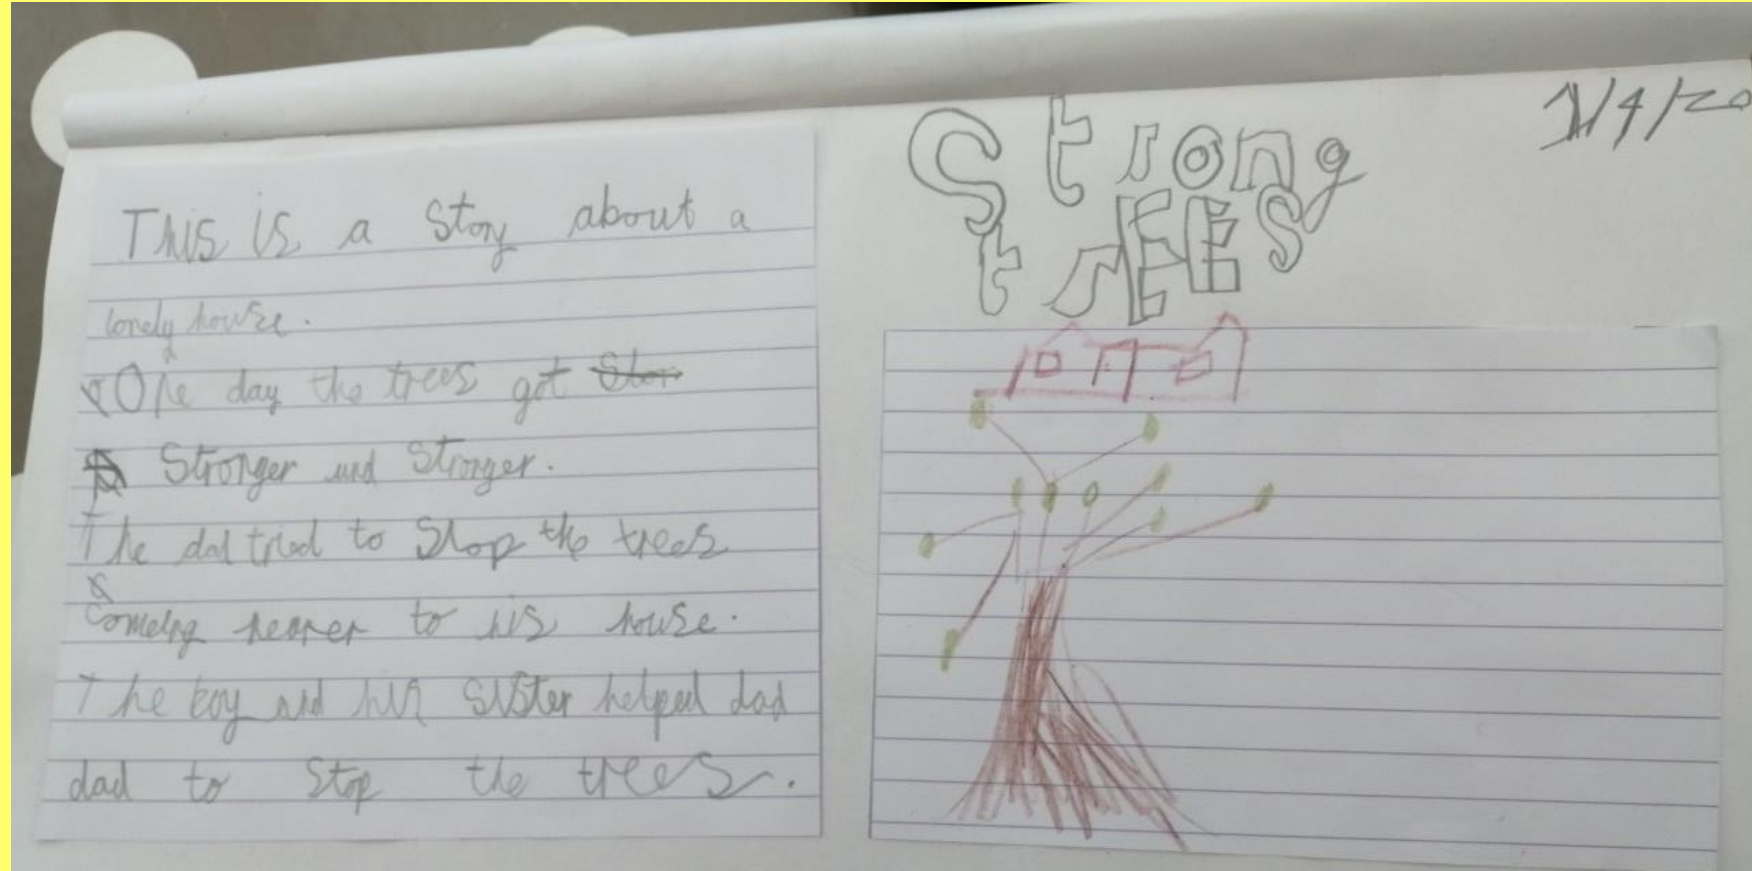 This is a story about a
lonely house.
One day the trees got
Stronger and Stronger.
The dad tried to Stop the trees
Comeing nearer to his house.
The boy and his sister helped dad
dad to Stop the trees.
Strong
trEES
1/4/20